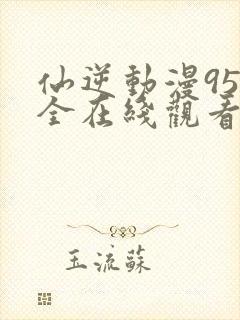 仙逆動漫95
全在綫觀看
玉流蘇